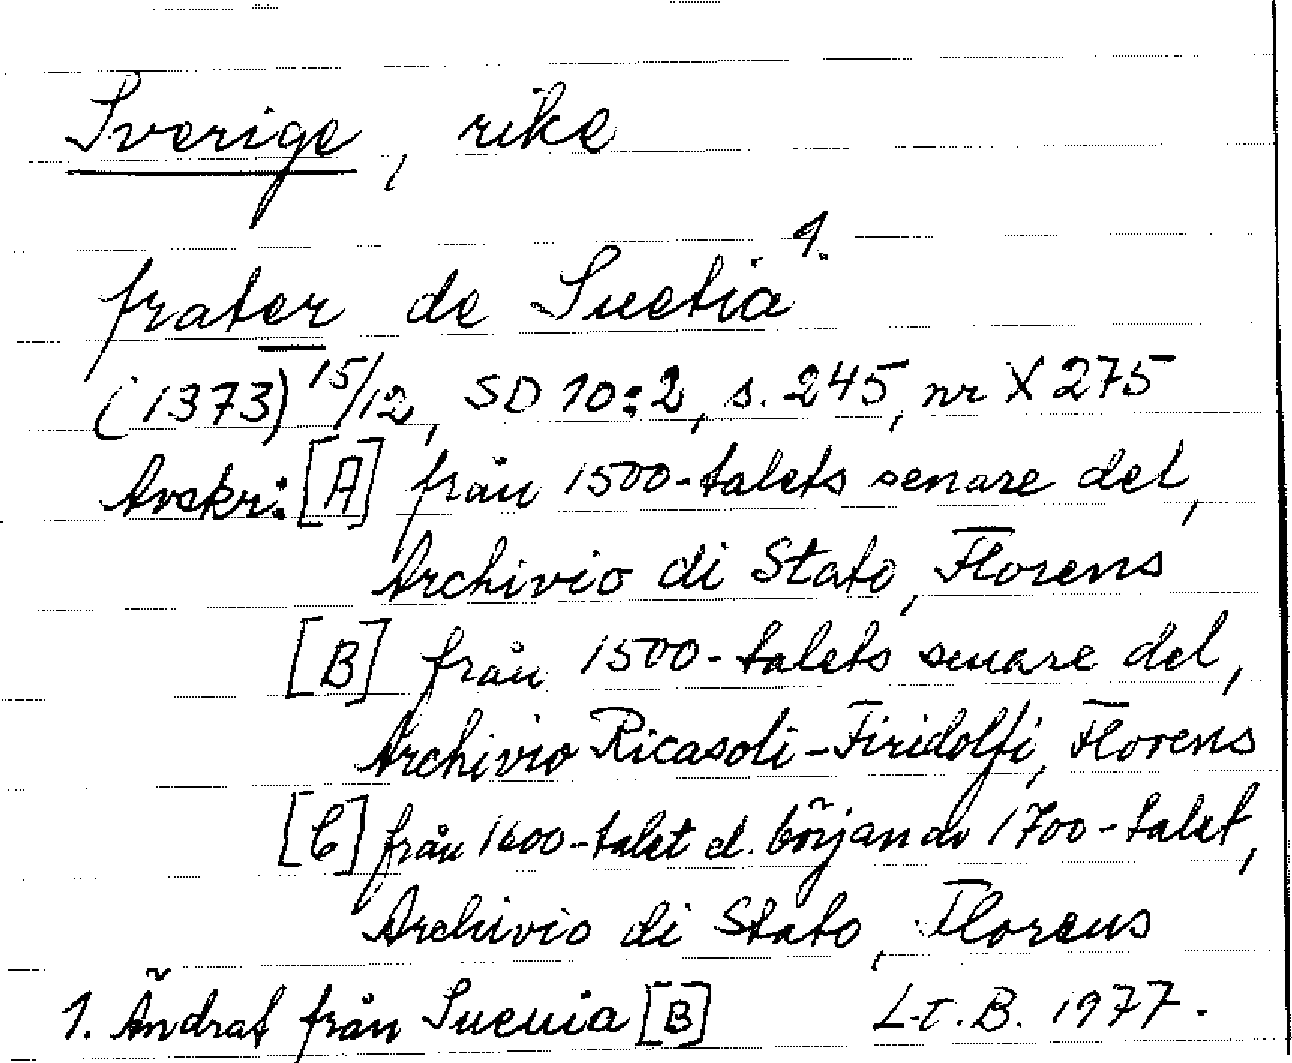 Sverige, rike
frater de Suetia 1.
(1373) 15/12, SD 10:2, s. 245, nr X 275
Avskr: [A] från 1500-talets senare del,
Archivio di Stato, Florens
[B] från 1500-talets senare del,
Archivio Ricasoli-Firidolfi, Florens
[C] från 1600-talet el. början av 1700-talet,
Archivio di Stato, Florens
1. Ändrat från Sueuia [B] L-t. B. 1977.